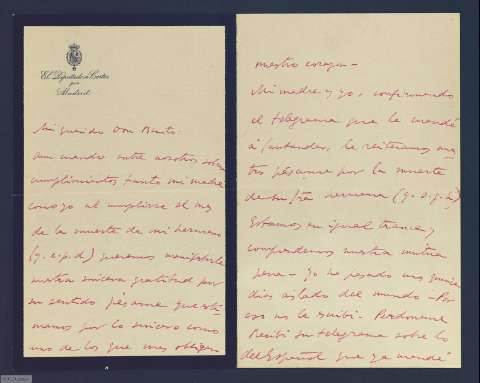 El Diputado a Cortes
por
Madrid
Mi querido Don Benito:
aun cuando entre nosotros sobran
cumplimientos tanto mi madre
como yo al cumplirse el mes
de la muerte de mi hermano
(q.e.p.d) queremos manifestarle
nuestra sincera gratitud por
su sentido pésame que esti-
mamos por lo sincero como
uno de los que mas obligan
nuestro corazon-
Mi madre y yo, confirmando
el telegrama que le mandé
á Santander, le reiteramos nues-
tro pésame por la muerte
de su hermana (q.s.g.h)
Estamos en igual trance y
comprendemos nuestra mutua
pena- Yo he pasado unos quince
dias aislado del mundo- Por
eso no le escribi- Perdoneme
Recibi su telegrama sobre lo
del Español que ya mandé